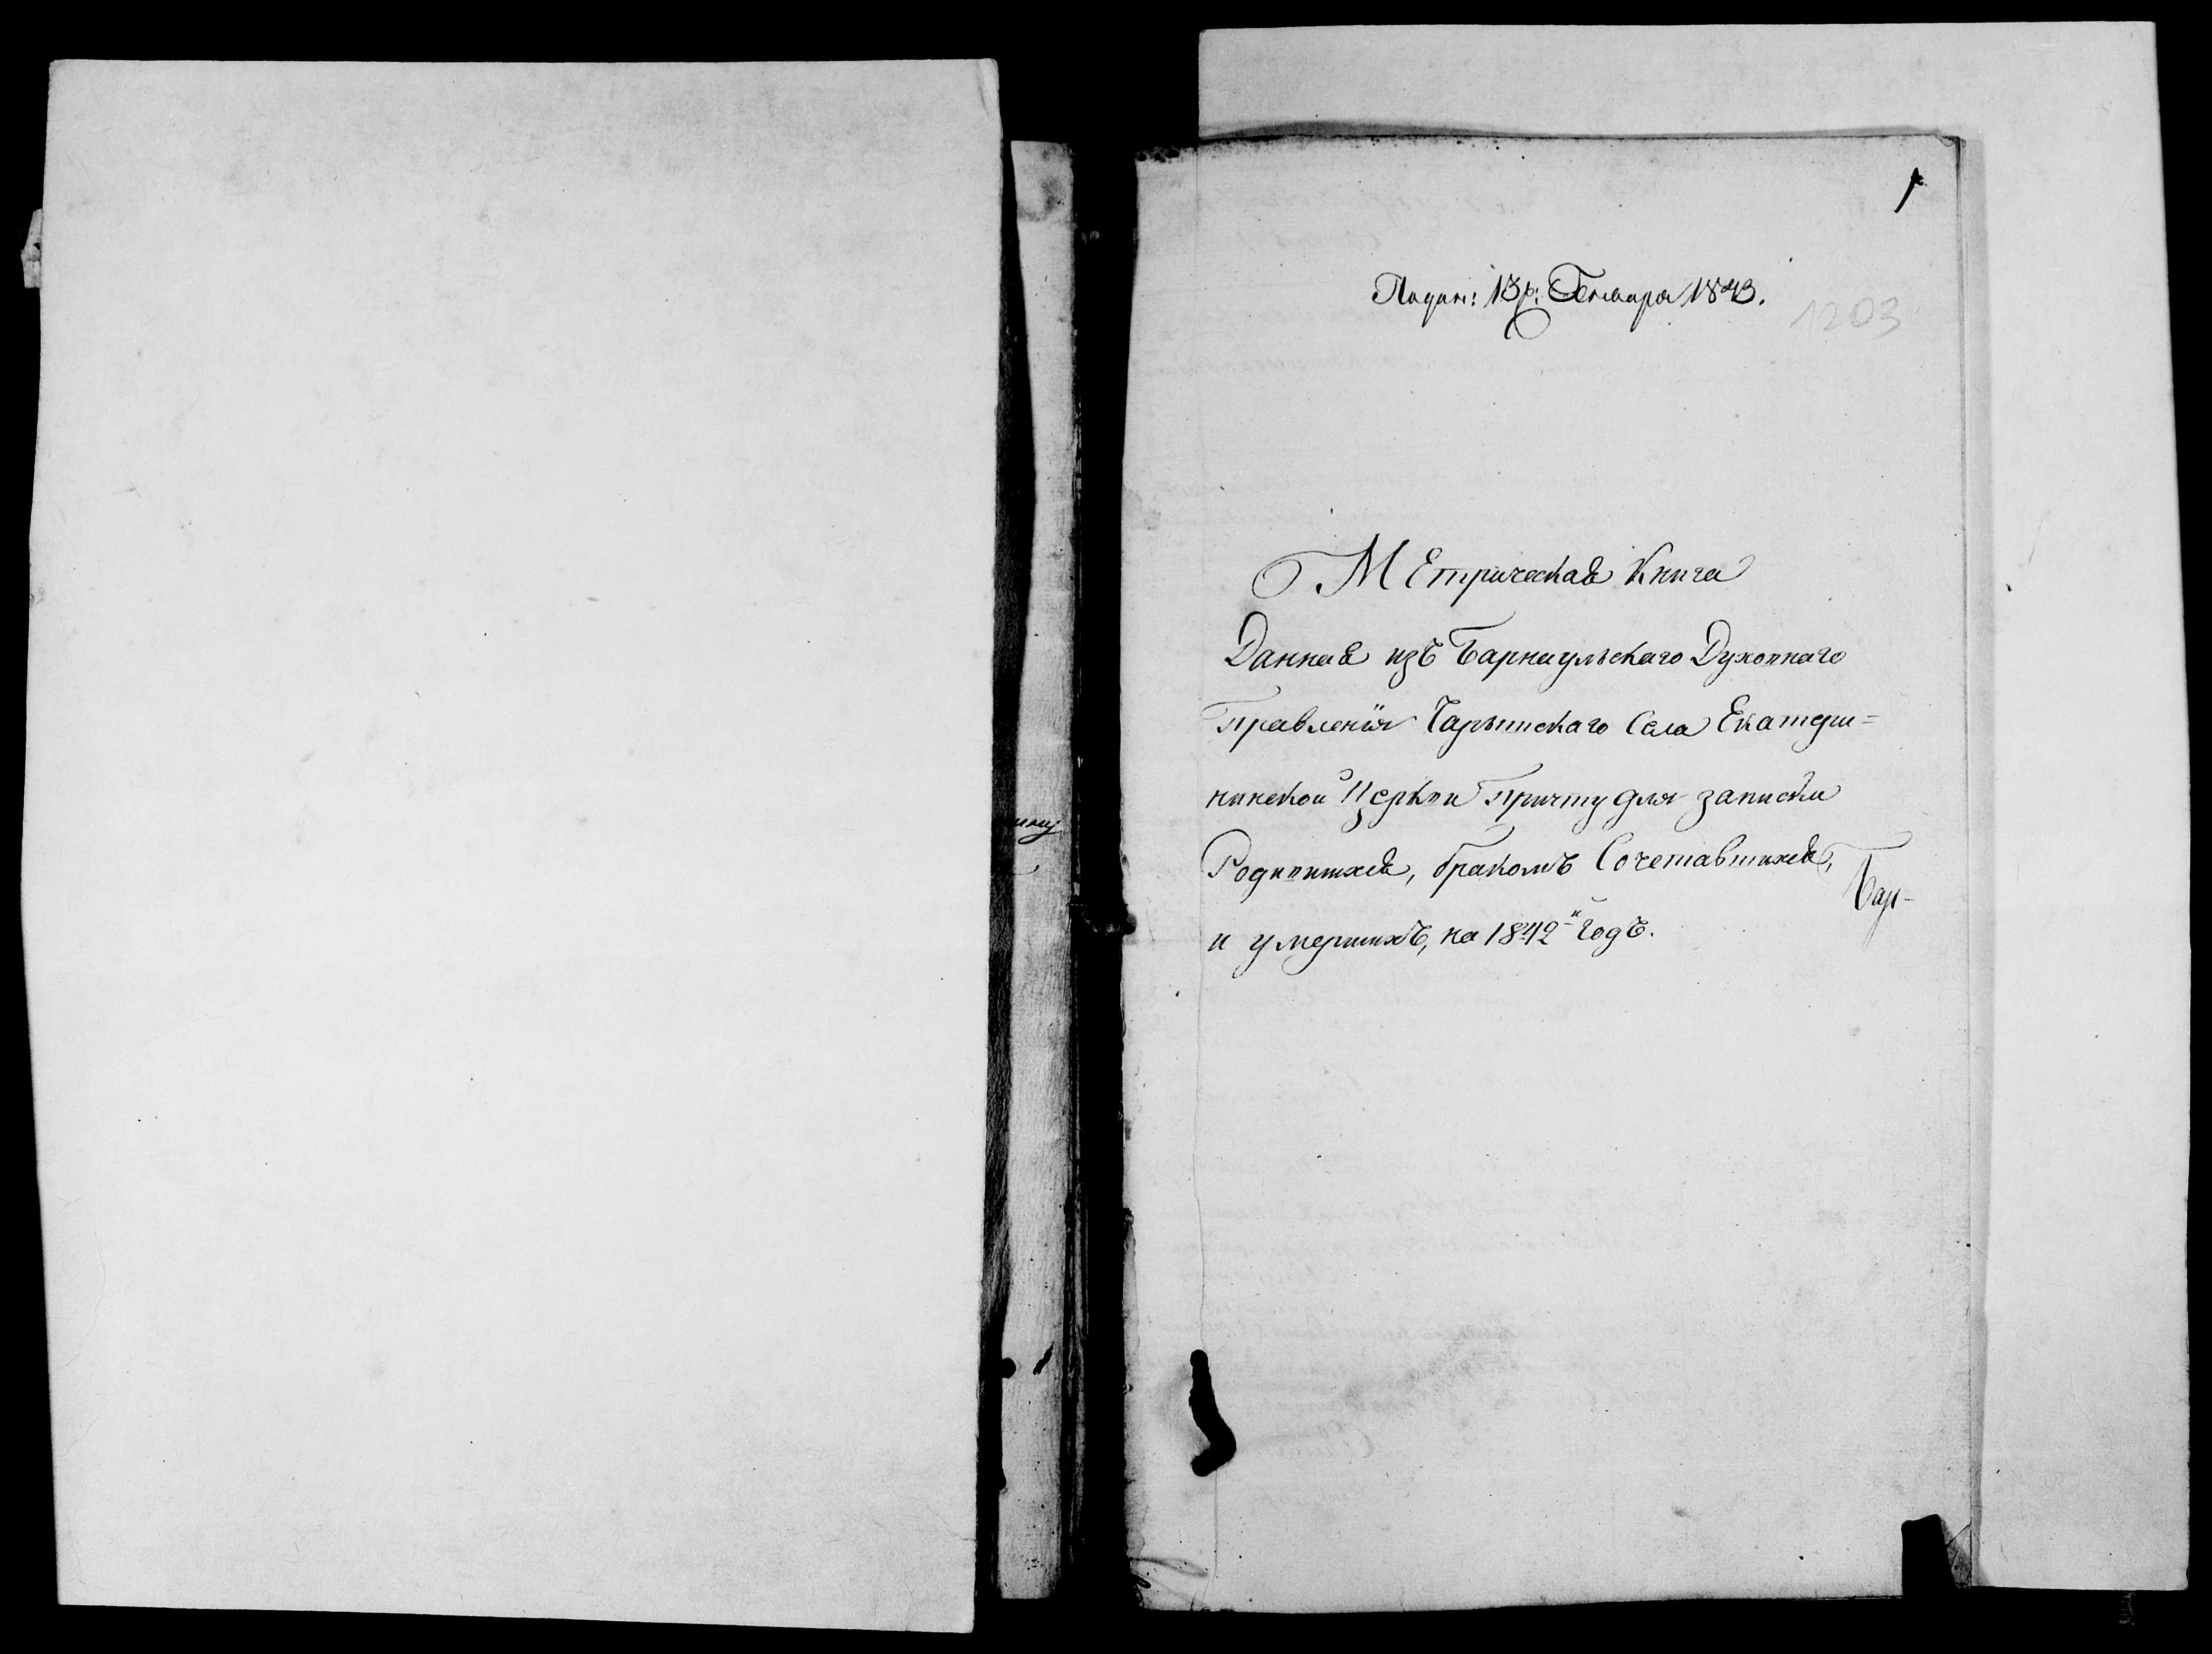 1
Подан: 13го Генваря 1843.
1203
Метрическая Книга
Данная изъ Барнаульскаго Духовнаго
Правленія Чарышскаго Села Екатери=
нинской Церкви Причту для записки
Родившихся, бракомъ Сочетавшихся,
Бар-
и умершихъ, на 1842й Годъ.